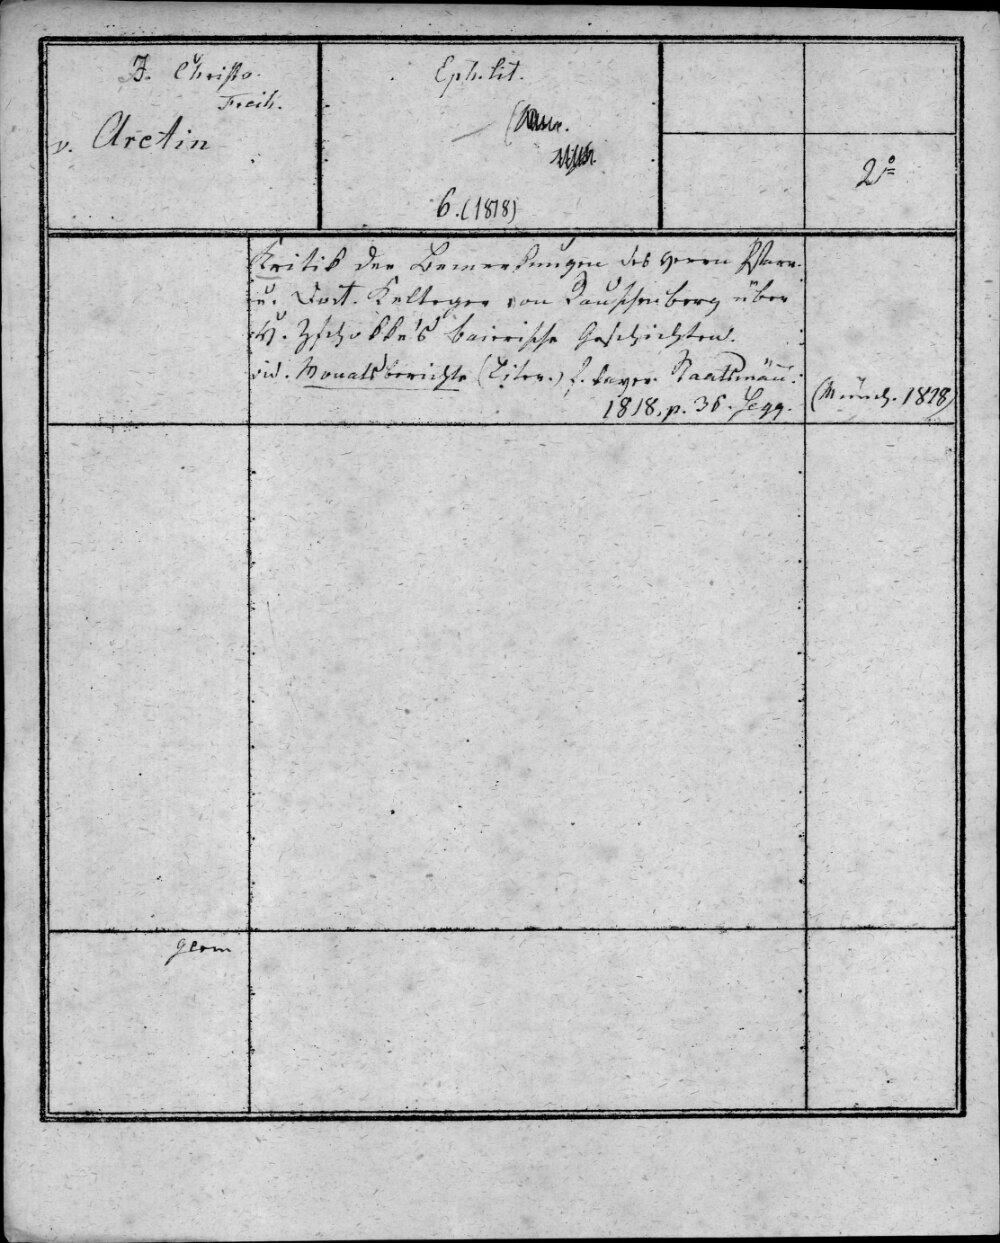 J. Christo.
Freih.
v. Aretin
Eph. lit.
6. (1818)
2°
Kritik der Bemerkungen des Herrn Pfarr.
u. Dort. von Dauschenberg über
H. Zschokke's baierische Geschichten.
vid. Monatsberichte (Liter.) f. bayer. Staatsmän̄:
1818. p. 36. seqq.
(Münch. 1818)
germ